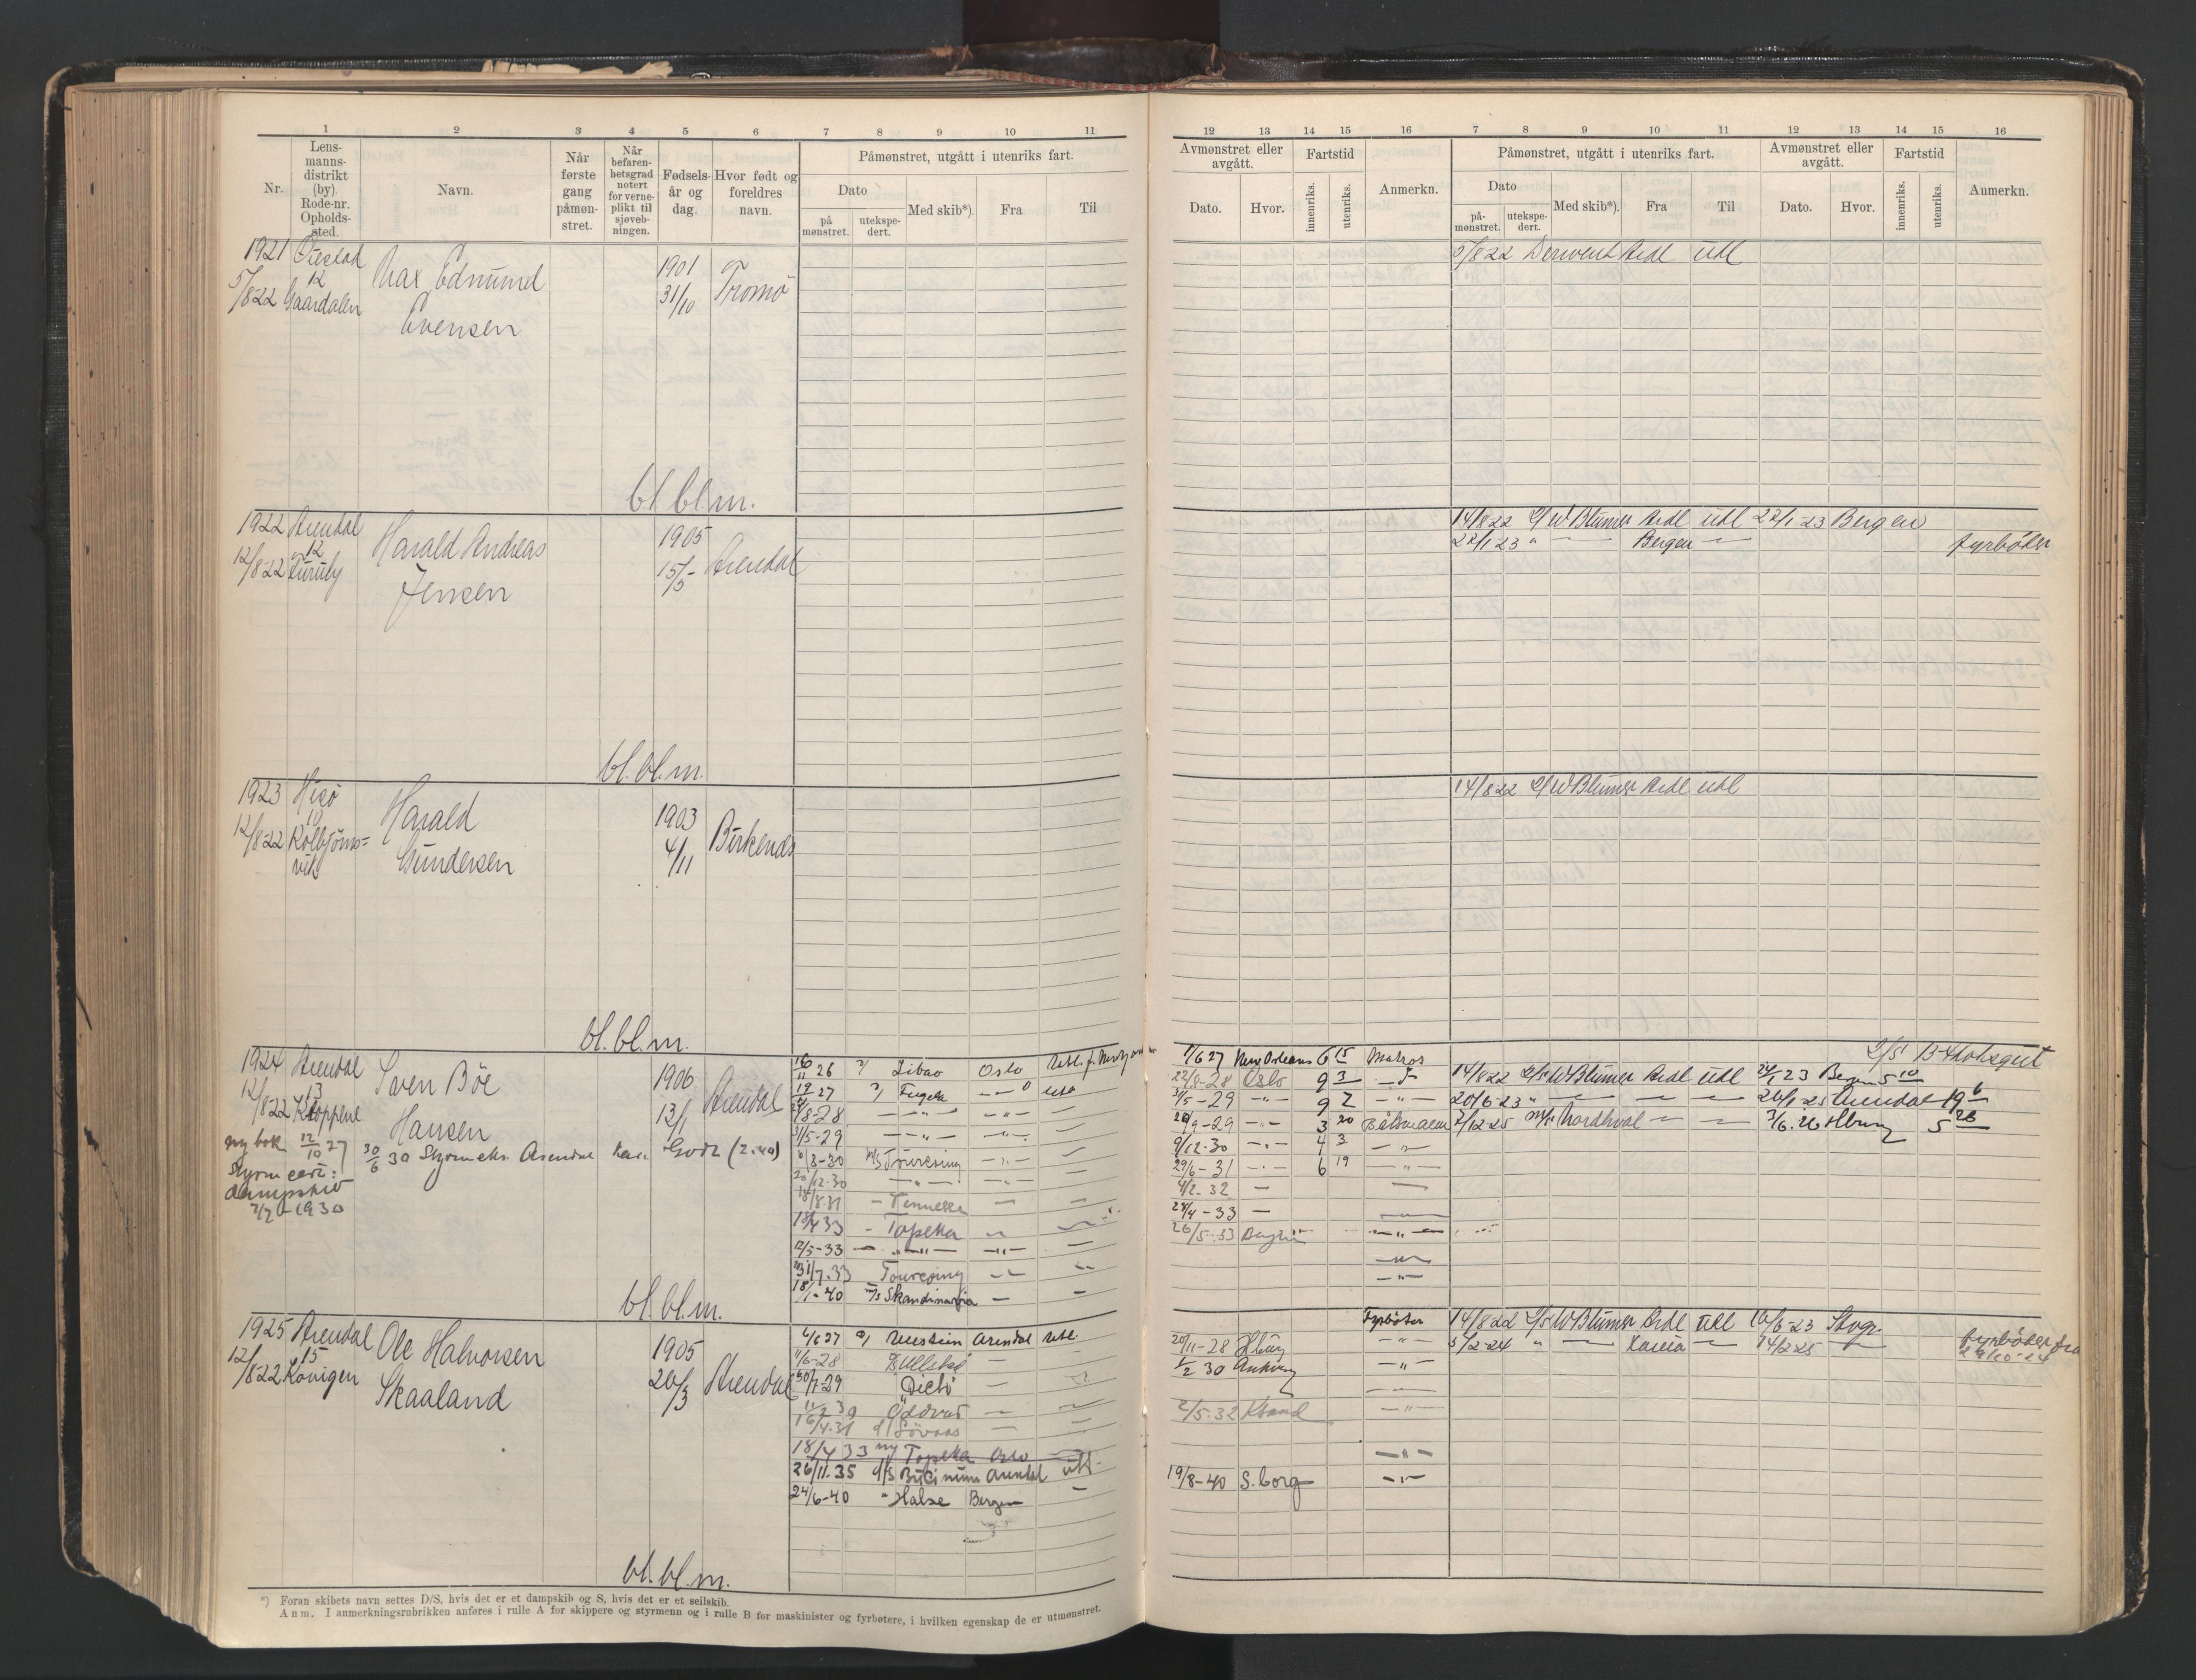 1 2 3 4 5 6 7 8 9 10 11
Nr.
Lens-
manns-
distrikt
(by).
Rode-nr.
Opholds-
sted.
Navn.
Når
første
gang
påmøn-
stret.
Når
befaren-
hetsgrad
notert
for verne-
plikt til
sjøveb-
ningen.
Fødsels-
år og
dag.
Hvor født og
foreldres
navn.
Påmønstret, utgått i utenriks fart.
Dato
på
mønstret.
utekspe-
dert.
Med skib*).
Fra
Til
1921
5/8 22
12
Gaardalen
Max Edmund
Evensen
1901
31/10
Tromö
bl.bl.m.
1922 Arendal
12
12/8 22
Harald Andreas
Jensen
1905
15/5
Arendal
bl.bl.m.
1923 Hisö
10
12/8 22 Kolbjörns=
vik
Harald
Gundersen
1903
4/11
Birkenes
bl.bl.m.
1924 Arendal
13
12/8 22 Kloppene
Sven Böe
Hansen
1906
13/1
Arendal
ny bok 12/10 27
30/6 30 Styrm eks. Arendal Kar. Godt (2.40)
Styrm cert:
dampskib
2/7-1930
16/11 26 Libao Oslo
19/ 27
24/8-28 —"— —"— —
31/5-29 —"— —"— —
6/8-30 M/S Touresing —"— —
20/12.30 —"— —"— —
18/8.31 — Kennecke — —
18/4 33 - Topeka — —
12/5-33 — —"— —"— —
31/7.33 Touresing — —
18/1-40 M/S Skandinavia — —
bl.bl.m.
1925 Arendal
15
12/8 22
Ole Halvorsen
Skaaland
1905
26/3
Arendal
4/6 27 Arendal utl.
11/6-28 —
30/7-29 —
11/2 30 —
16/4.31 —
18/4 33 Topeka Oslo
26/11.35 d/s Arendal utl.
24/6-40 " Halse Bergen —
bl.bl.m.
*) Foran skibets navn settes D/S, hvis det er et dampskib og S, hvis det er et seilskib.
Anm. I anmerkningsrubrikken anføres i rulle A for skippere og styrmenn og i rulle B for maskinister og fyrbøtere, i hvilken egenskap de er utmønstret.
12 13 14 15 16 7 8 9 10 11 12 13 14 15 16
Avmønstret eller
avgått.
Dato.
Hvor.
Fartstid
innenriks.
utenriks.
Anmerkn.
Påmønstret, utgått i utenriks fart.
Dato
på-
mønstret.
utekspe-
dert.
Med skib*).
Fra
Til
Avmønstret eller
avgått.
Dato.
Hvor.
Fartstid
innenriks.
utenriks.
Anmerkn.
5/8 22 Derwent Ardl utl
14/8 22 G/W Blumer Ardl utl 22/1 23 Bergen
22/1 23 " — Bergen — fyrböter
14/8 22 G/W Blumer Ardl utl
1/6 27 New Orleans 6 15 Matros
22/8-28 Oslo 9 3
14/8 22 G/W Blumer Ardl utl 24/1 23 Bergen 5 10
31/5-29 —"— 9 7 —"—
20/6-23 " — — — 26/1-25 Arendal 19 6
20/9-29 —"— 3 20 Båtsmann
7/12-25 Nordhval — — 3/6.26 Hburg 5 26
9/12-30 —"— 4 3 —"—
29/6-31 —"— 6 19 —"—
4/2.32 — —
28/4-33 — —
26/5.33 —"—
—"—
—"—
Fyrböter
14/8 22 G/W Blumer Ardl utl 16/6-23
20/11-28 Hburg —"—
5/2-24 " — — 14/2 25 —
fyrböter fra
29/10-24
1/2 30 —"—
—
2/5.32 Ksand —"—
—"—
19/8-40 S.borg —"—